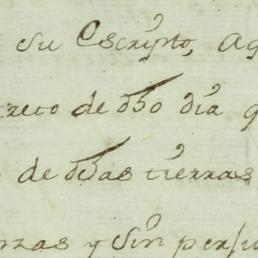 su Escripto, Aq
creto de dho día q
de dhas tierras
rras y Sin perju